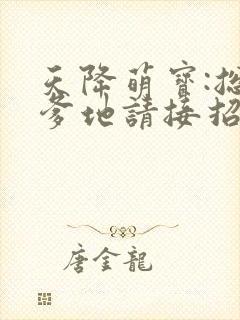 天降萌寶:總
爹地請接招
唐金龍